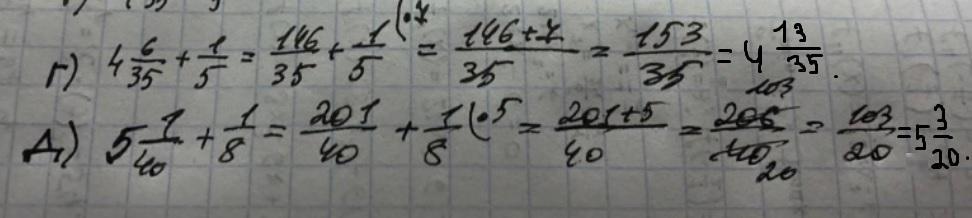 г) 4 6/35 + 1/5 = 146/35 + 1/5 (·7 = 146+7/35 = 153/35 = 4 13/35.
Д) 5 1/40 + 1/8 = 201/40 + 1/8 (·5 = 201+5/40 = 206/40 103/20 = 103/20 = 5 3/20.